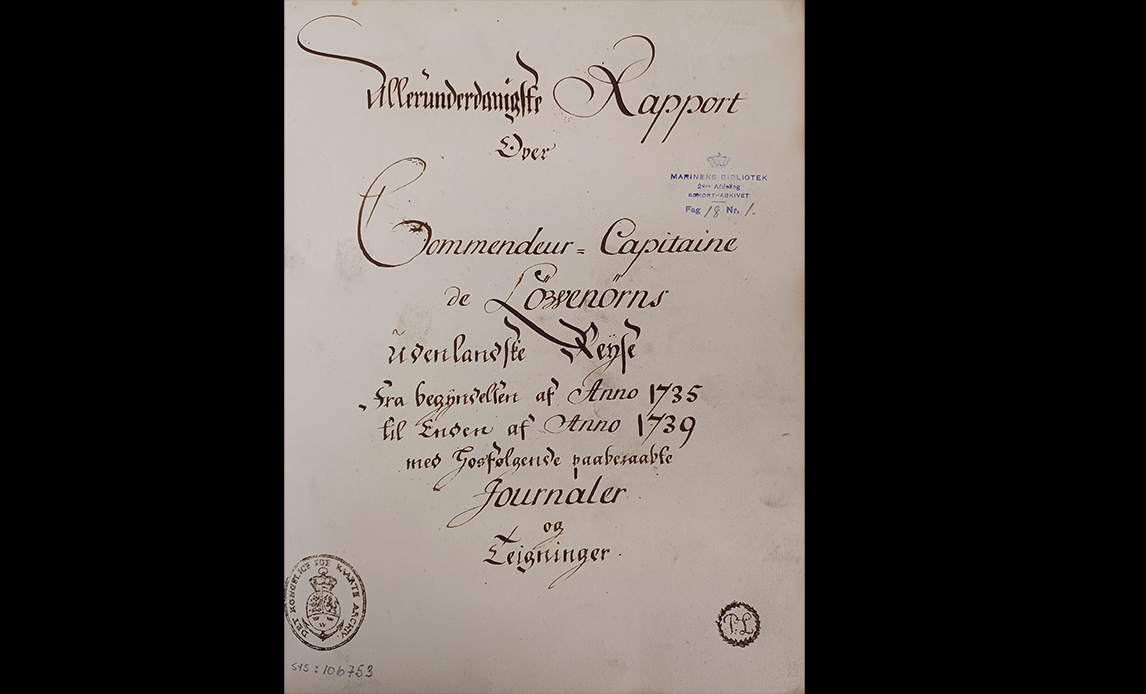 Allerunderdanigste Rapport
Over
Commendeur = Capitaine
de Löwenörns
Udenlandske Reÿse
Fra begÿndelsen af Anno 1735
til Enden af Anno 1739
med Hosfølgende paaberaabte
Journaler
og
Teigninger.
MARINENS BIBLIOTEK
2den Afdeling
SØKORT-ARKIVET
Fag 18 Nr. 1.
DET KONGELIGE SØE KAARTE ARCHIV.
P.L
sys: 106753